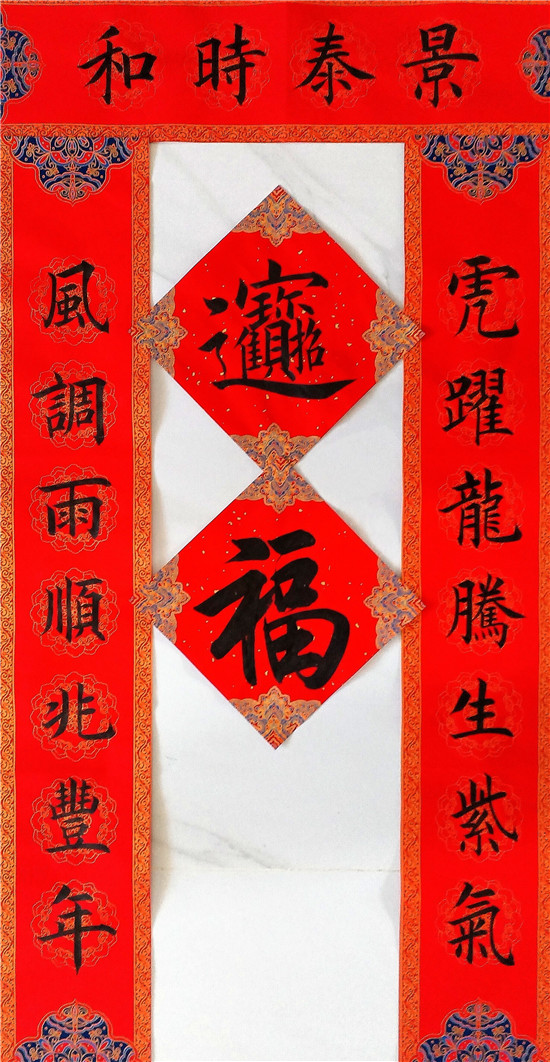 景泰時和
虎躍龍騰生紫氣
風調雨順兆豐年
招財進寶
福